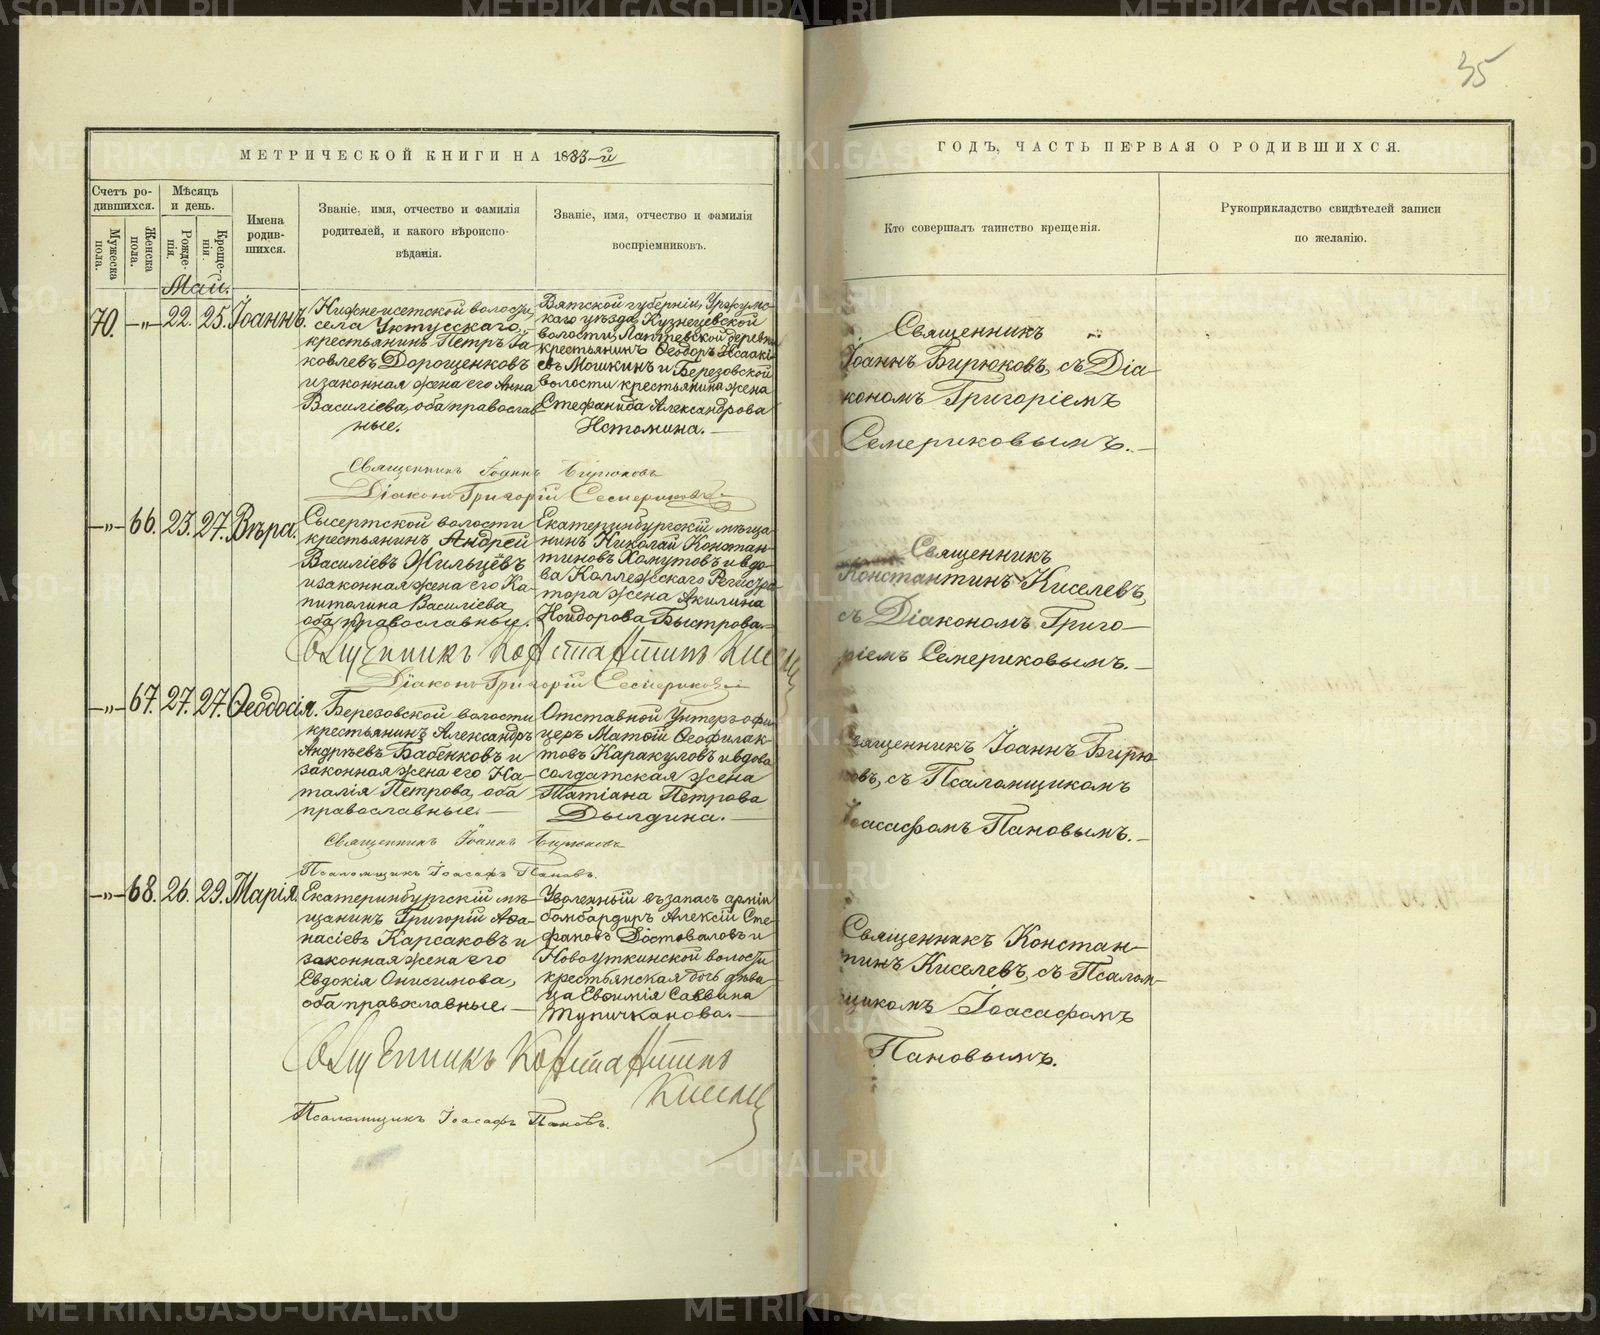 35
МЕТРИЧЕСКОЙ КНИГИ НА 1883-й
ГОДЪ, ЧАСТЬ ПЕРВАЯ О РОДИВШИХСЯ.
Счетъ ро-
дившихся.
Мужеска
пола.
Женска
пола.
Мѣсяцъ
и день.
Рожде-
нія.
Креще-
нія.
Имена
родив-
шихся.
Званіе, имя, отчество и фамилія
родителей, и какого вѣроиспо-
вѣданія.
Званіе, имя, отчество и фамилія
воспріемниковъ.
Кто совершалъ таинство крещенія.
Рукоприкладство свидѣтелей записи
по желанію.
Май.
70. —„— 22. 25. Іоаннъ.
Нижнеисетской волости,
села Уктусскаго,
крестьянинъ Петръ Іа-
ковлевъ Дорощенковъ
и законная жена его Анна
Василіева, оба православ-
ные.
Вятской губерніи, Уржумс-
каго уѣзда, Кузнецевской
волости, Лаптевской деревни
крестьянинъ Ѳеодоръ Исааки-
евъ Мошкинъ и Березовской
волости крестьянина жена
Стефанида Александрова
Истомина.—
Священникъ
Іоаннъ Бирюковъ, съ Діа-
кономъ Григоріемъ
Семериковымъ.—
Священникъ Іоаннъ Бирюковъ
Діаконъ Григорій Семериковъ
—„— 66. 23. 27. Вѣра.
Сысертской волости
крестьянинъ Андрей
Василіевъ Жильцевъ
и законная жена его Ка-
питолина Василіева,
оба православные.
Екатеринбургскій мѣща-
нинъ Николай Констан-
тиновъ Хомутовъ и вдо-
ва Коллежскаго Регистра-
тора жена Акилина
Быстрова.—
Священникъ
Константинъ Киселевъ,
съ Діакономъ Григо-
ріемъ Семериковымъ.—
Священникъ Константинъ Киселевъ
Діаконъ Григорій Семериковъ
—„— 67. 27. 27. Ѳеодосія.
Березовской волости
крестьянинъ Александръ
Андреевъ Бабенковъ и
законная жена его На-
талія Петрова, оба
православные.—
Отставной Унтеръ-офи-
церъ Матѳій Ѳеофилак-
товъ Каракуловъ и вдова
солдатская жена
Татіана Петрова
Дылдина.—
Священникъ Іоаннъ Бирю-
ковъ, съ Псаломщикомъ
Іоасафомъ Пановымъ.—
Священникъ Іоаннъ Бирюковъ
Псаломщикъ Іоасафъ Пановъ.
—„— 68. 26. 29. Марія.
Екатеринбургскій мѣ-
щанинъ Григорій Аѳа-
насіевъ Карсаковъ и
законная жена его
Евдокія Онисимова,
оба православные.—
Уволенный въ запасъ арміи
бомбардиръ Алексій Сте-
фановъ Достоваловъ и
Новоуткинской волости
крестьянская дочь дѣви-
ца Евѳимія Саввина
Тупичканова.—
Священникъ Констан-
тинъ Киселевъ, съ Псалом-
щикомъ Іоасафомъ
Пановымъ.
Священникъ Константинъ
Киселевъ
Псаломщикъ Іоасафъ Пановъ.
METRIKI.GASO-URAL.RU